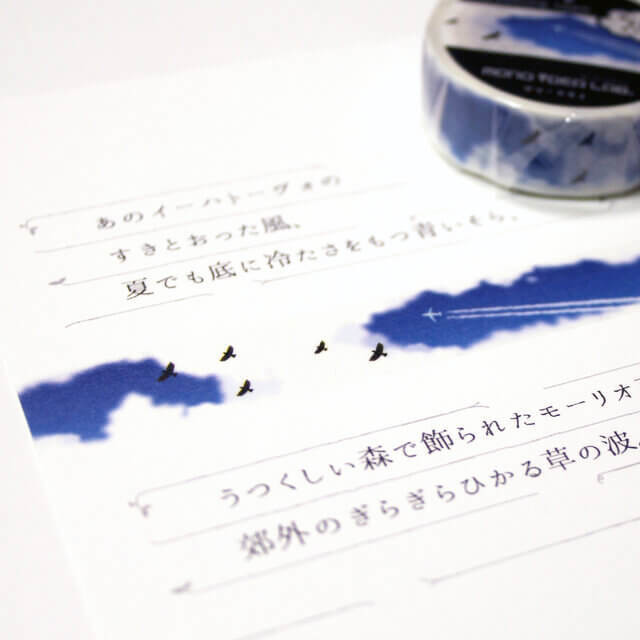 あのイーハトーヴォの
すきとおった風、
夏でも底に冷たさをもつ青いそら、
うつくしい森で飾られたモーリオ
郊外のぎらぎらひかる草の波。